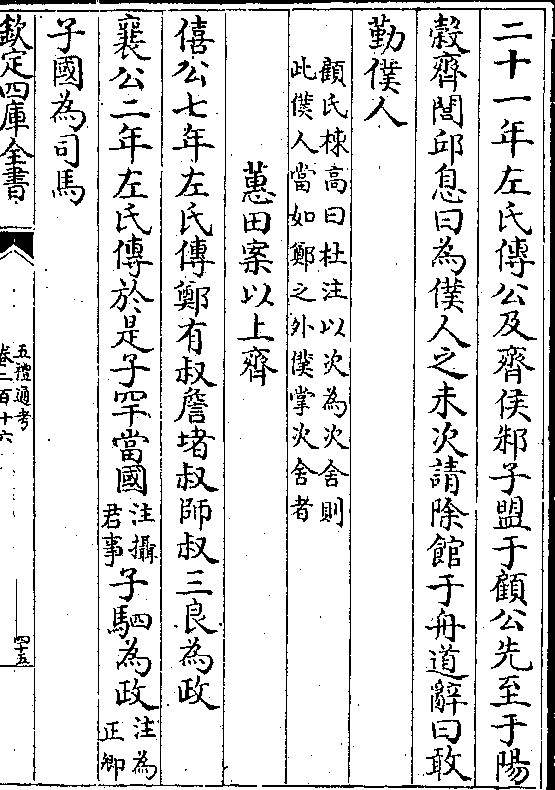 二十一年左氏傳公及齊侯邾子盟于顧公先至于陽
穀齊閭邱息曰為僕人之未次請除館于舟道辭曰敢
勤僕人
顧氏棟高曰杜注以次為次舍則
此僕人當如鄭之外僕掌次舍者
蕙田案以上齊
僖公七年左氏傳鄭有叔詹堵叔師叔三良為政
襄公二年左氏傳於是子罕當國注攝君事子駟為政注為正卿
子國為司馬
欽定四庫全書
五禮通考
卷二百十六
四十五